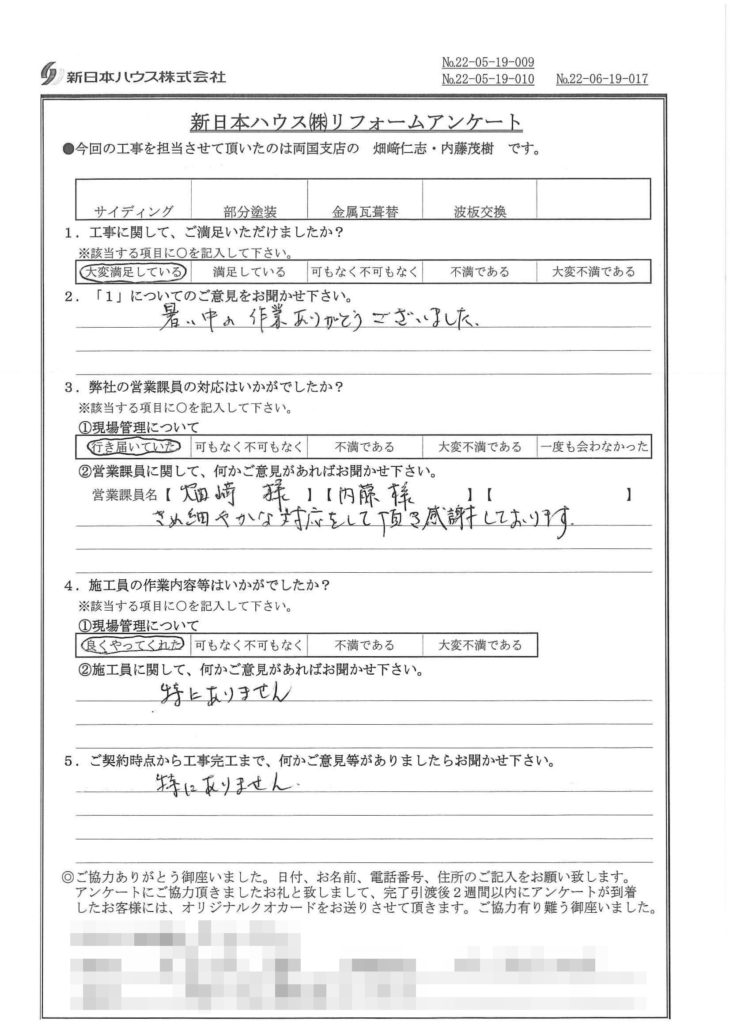 新日本ハウス株式会社
№22-05-19-009
№22-05-19-010 №22-06-19-017
新日本ハウス㈱リフォームアンケート
●今回の工事を担当させて頂いたのは両国支店の 畑﨑仁志・内藤茂樹 です。
サイディング 部分塗装 金属瓦葺替 波板交換
1．工事に関して、ご満足いただけましたか？
※該当する項目に○を記入して下さい。
大変満足している 満足している 可もなく不可もなく 不満である 大変不満である
2．「1」についてのご意見をお聞かせ下さい。
暑い中の作業ありがとうございました.
3．弊社の営業課員の対応はいかがでしたか？
※該当する項目に○を記入して下さい。
①現場管理について
行き届いていた 可もなく不可もなく 不満である 大変不満である 一度も会わなかった
②営業課員に関して、何かご意見があればお聞かせ下さい。
営業課員名【 畑﨑 様 】【 内藤 様 】【 】
きめ細やかな対応をして頂き感謝しております.
4．施工員の作業内容等はいかがでしたか？
※該当する項目に○を記入して下さい。
①現場管理について
良くやってくれた 可もなく不可もなく 不満である 大変不満である
②施工員に関して、何かご意見があればお聞かせ下さい。
特にありません
5．ご契約時点から工事完工まで、何かご意見等がありましたらお聞かせ下さい。
特にありません.
◎ご協力ありがとう御座いました。日付、お名前、電話番号、住所のご記入をお願い致します。
アンケートにご協力頂きましたお礼と致しまして、完了引渡後2週間以内にアンケートが到着
したお客様には、オリジナルクオカードをお送りさせて頂きます。ご協力有り難う御座いました。